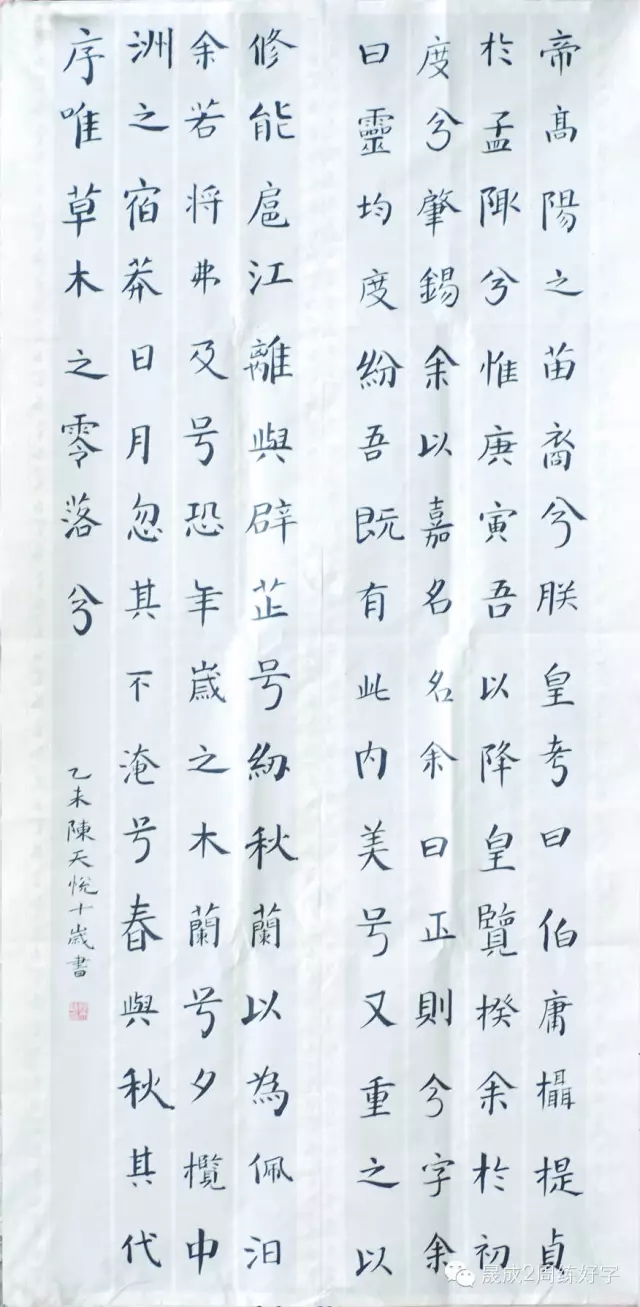 帝髙陽之苗裔兮朕皇考曰伯庸欇提貞
於孟陬兮惟庚寅吾以降皇覽揆余於初
度兮肇錫余以嘉名名余曰正則兮字余
曰靈均度紛吾既有此内美号又重之以
修能扈江離與辟芷号紉秋蘭以為佩汩
余若将弗及号恐年歲之木蘭号夕欖中
洲之宿莽日月忽其不淹号春與秋其代
序唯草木之零落兮
乙未陳天悦十歲書
晟成2周练好字